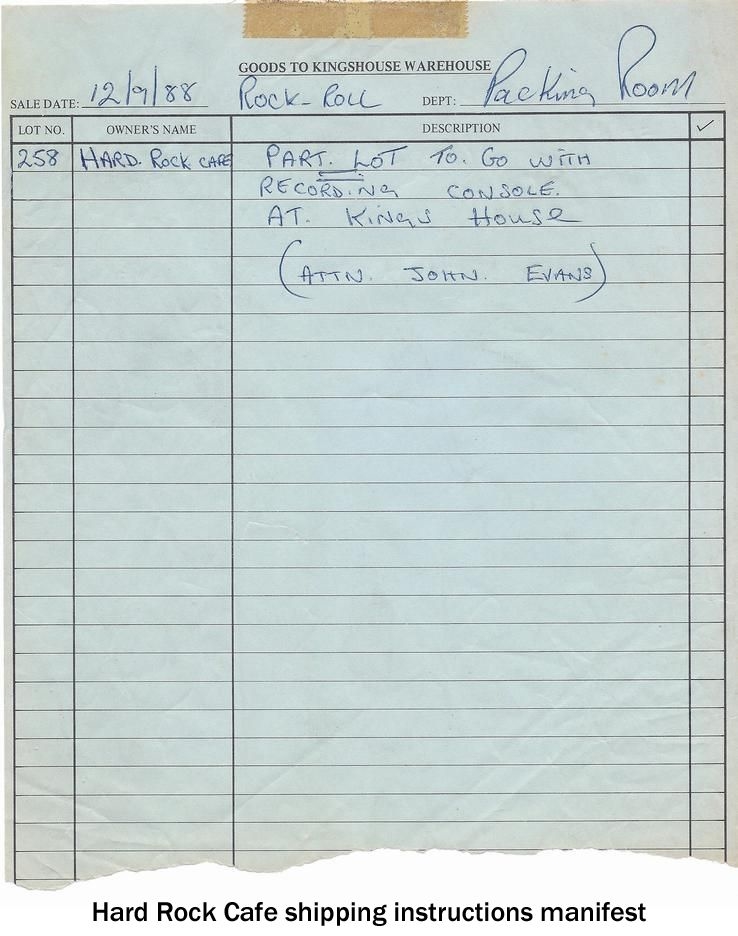 GOODS TO KINGSHOUSE WAREHOUSE
SALE DATE: 12/9/88 ROCK-ROLL DEPT: Packing Room
LOT NO. OWNER'S NAME DESCRIPTION ✓
258 HARD. ROCK CAFE PART. LOT TO. GO WITH
RECORDING CONSOLE.
AT. KINGS HOUSE
(ATTN. JOHN. EVANS)
Hard Rock Cafe shipping instructions manifest